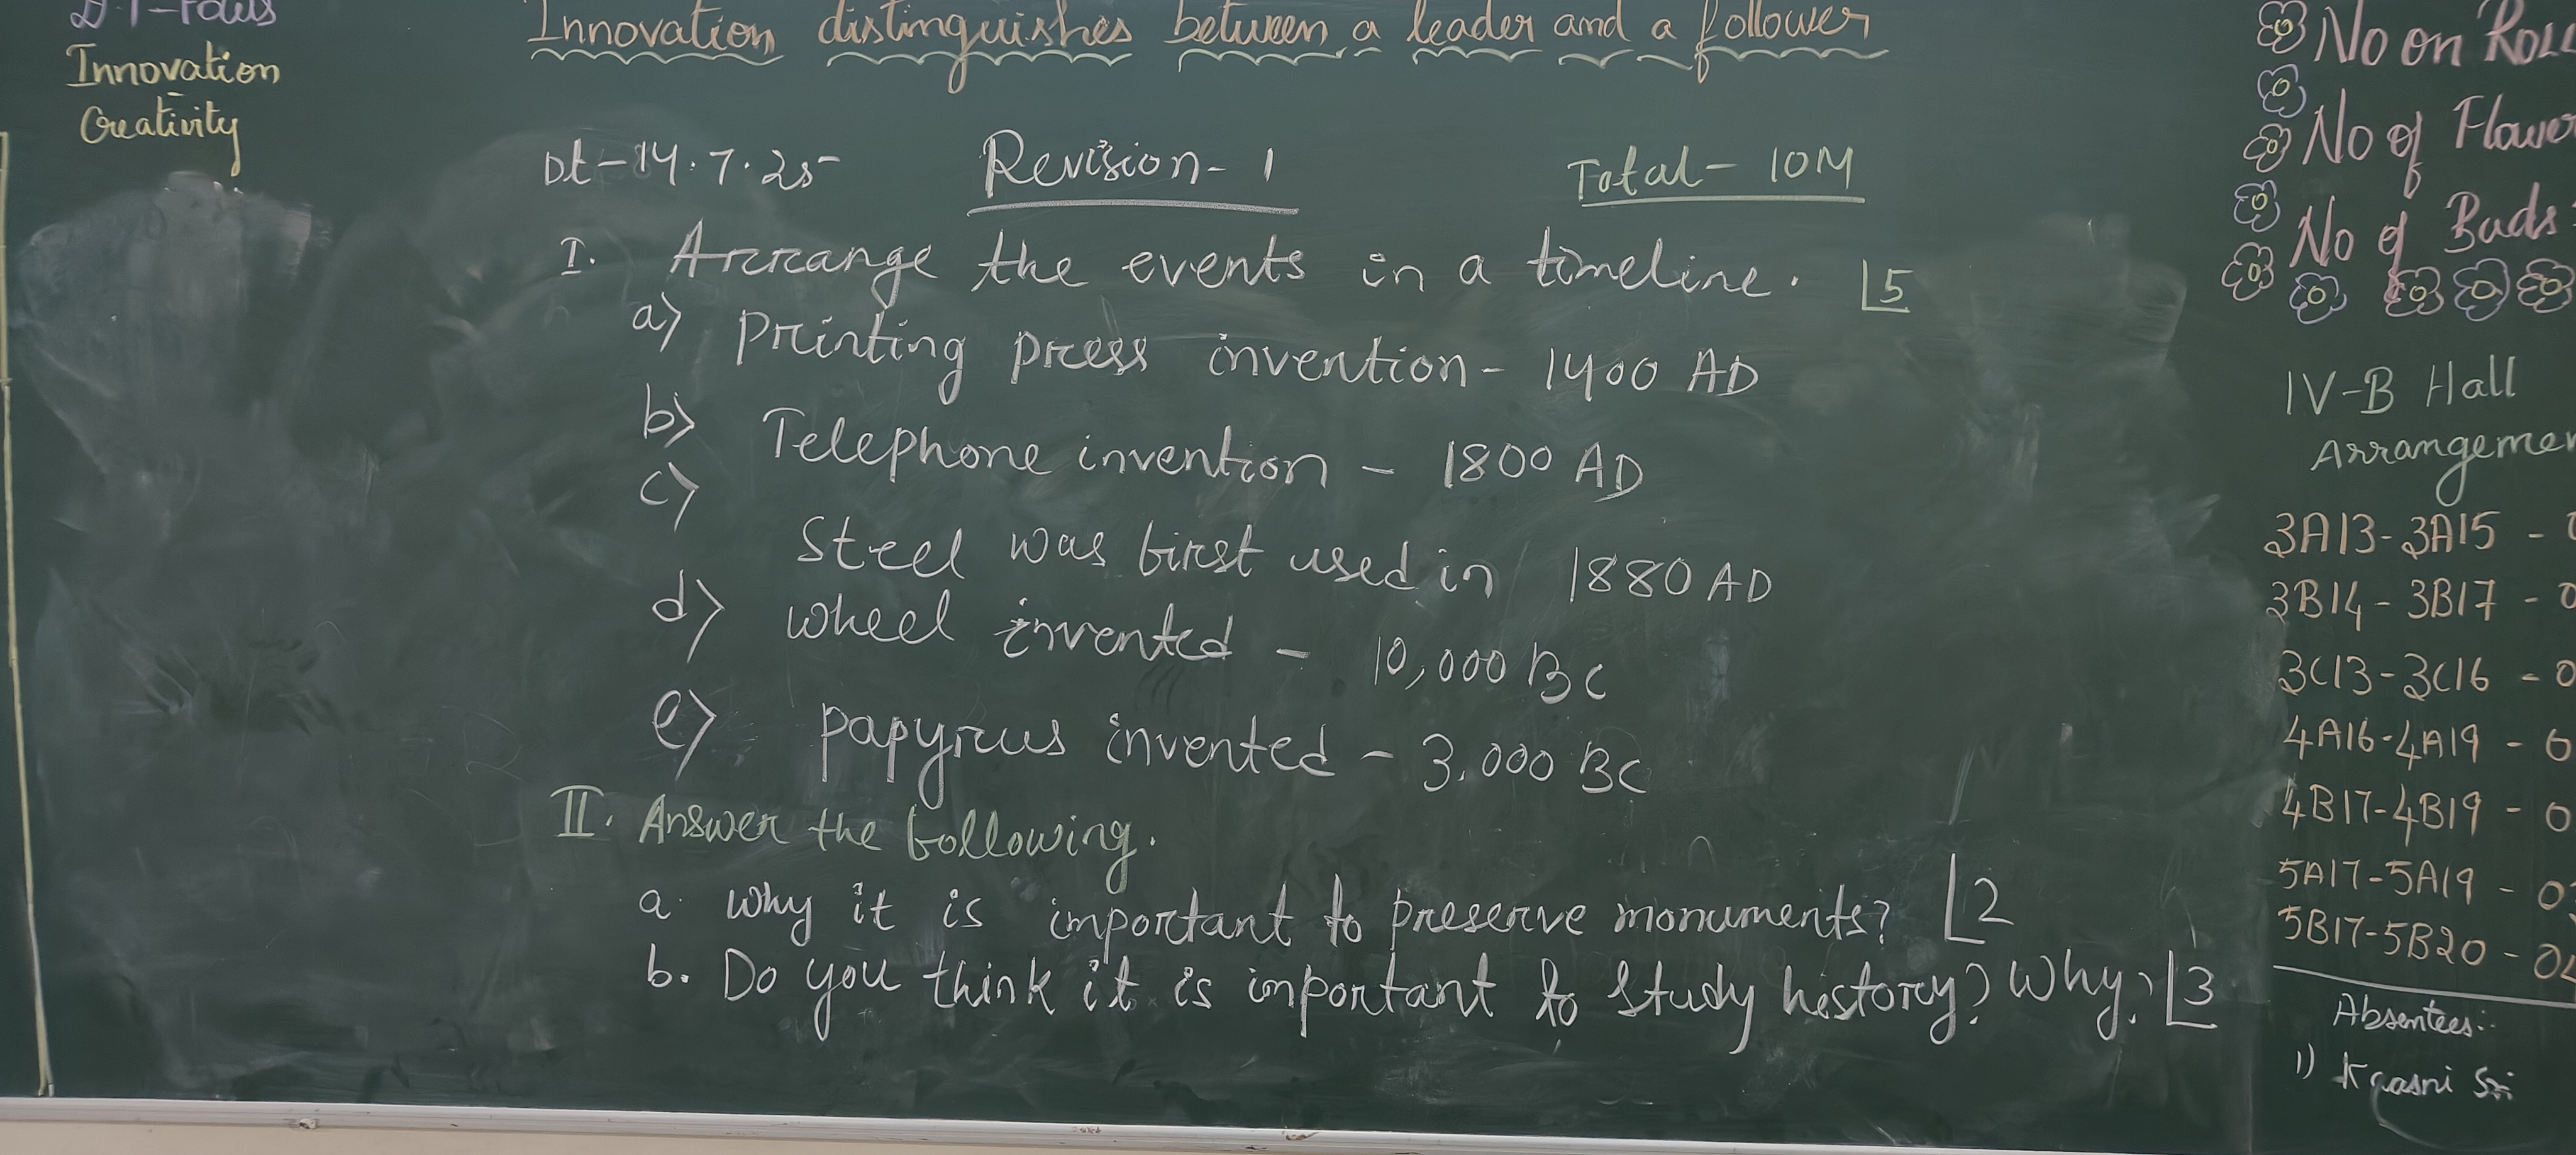 Innovation
Creativity
Innovation distinguishes between a leader and a follower
Dt-14.7.25
Revision-1
Total-10M
I. Arrange the events in a timeline. 5
a) Printing press invention- 1400 AD
b) Telephone invention - 1800 AD
c) Steel was first used in 1880 AD
d) wheel invented - 10,000 BC
e) papyrus invented - 3,000 BC
II. Answer the following.
a. Why it is important to preserve monuments? 2
b. Do you think it is important to study history? Why? 3
No on
No of
No of Buds
IV-B Hall
3A13-3A15 -
3B14-3B17 -
3C13-3C16 -
4A16-4A19 -
4B17-4B19 -
5A17-5A19 -
5B17-5B20 -
Absentees:-
1)